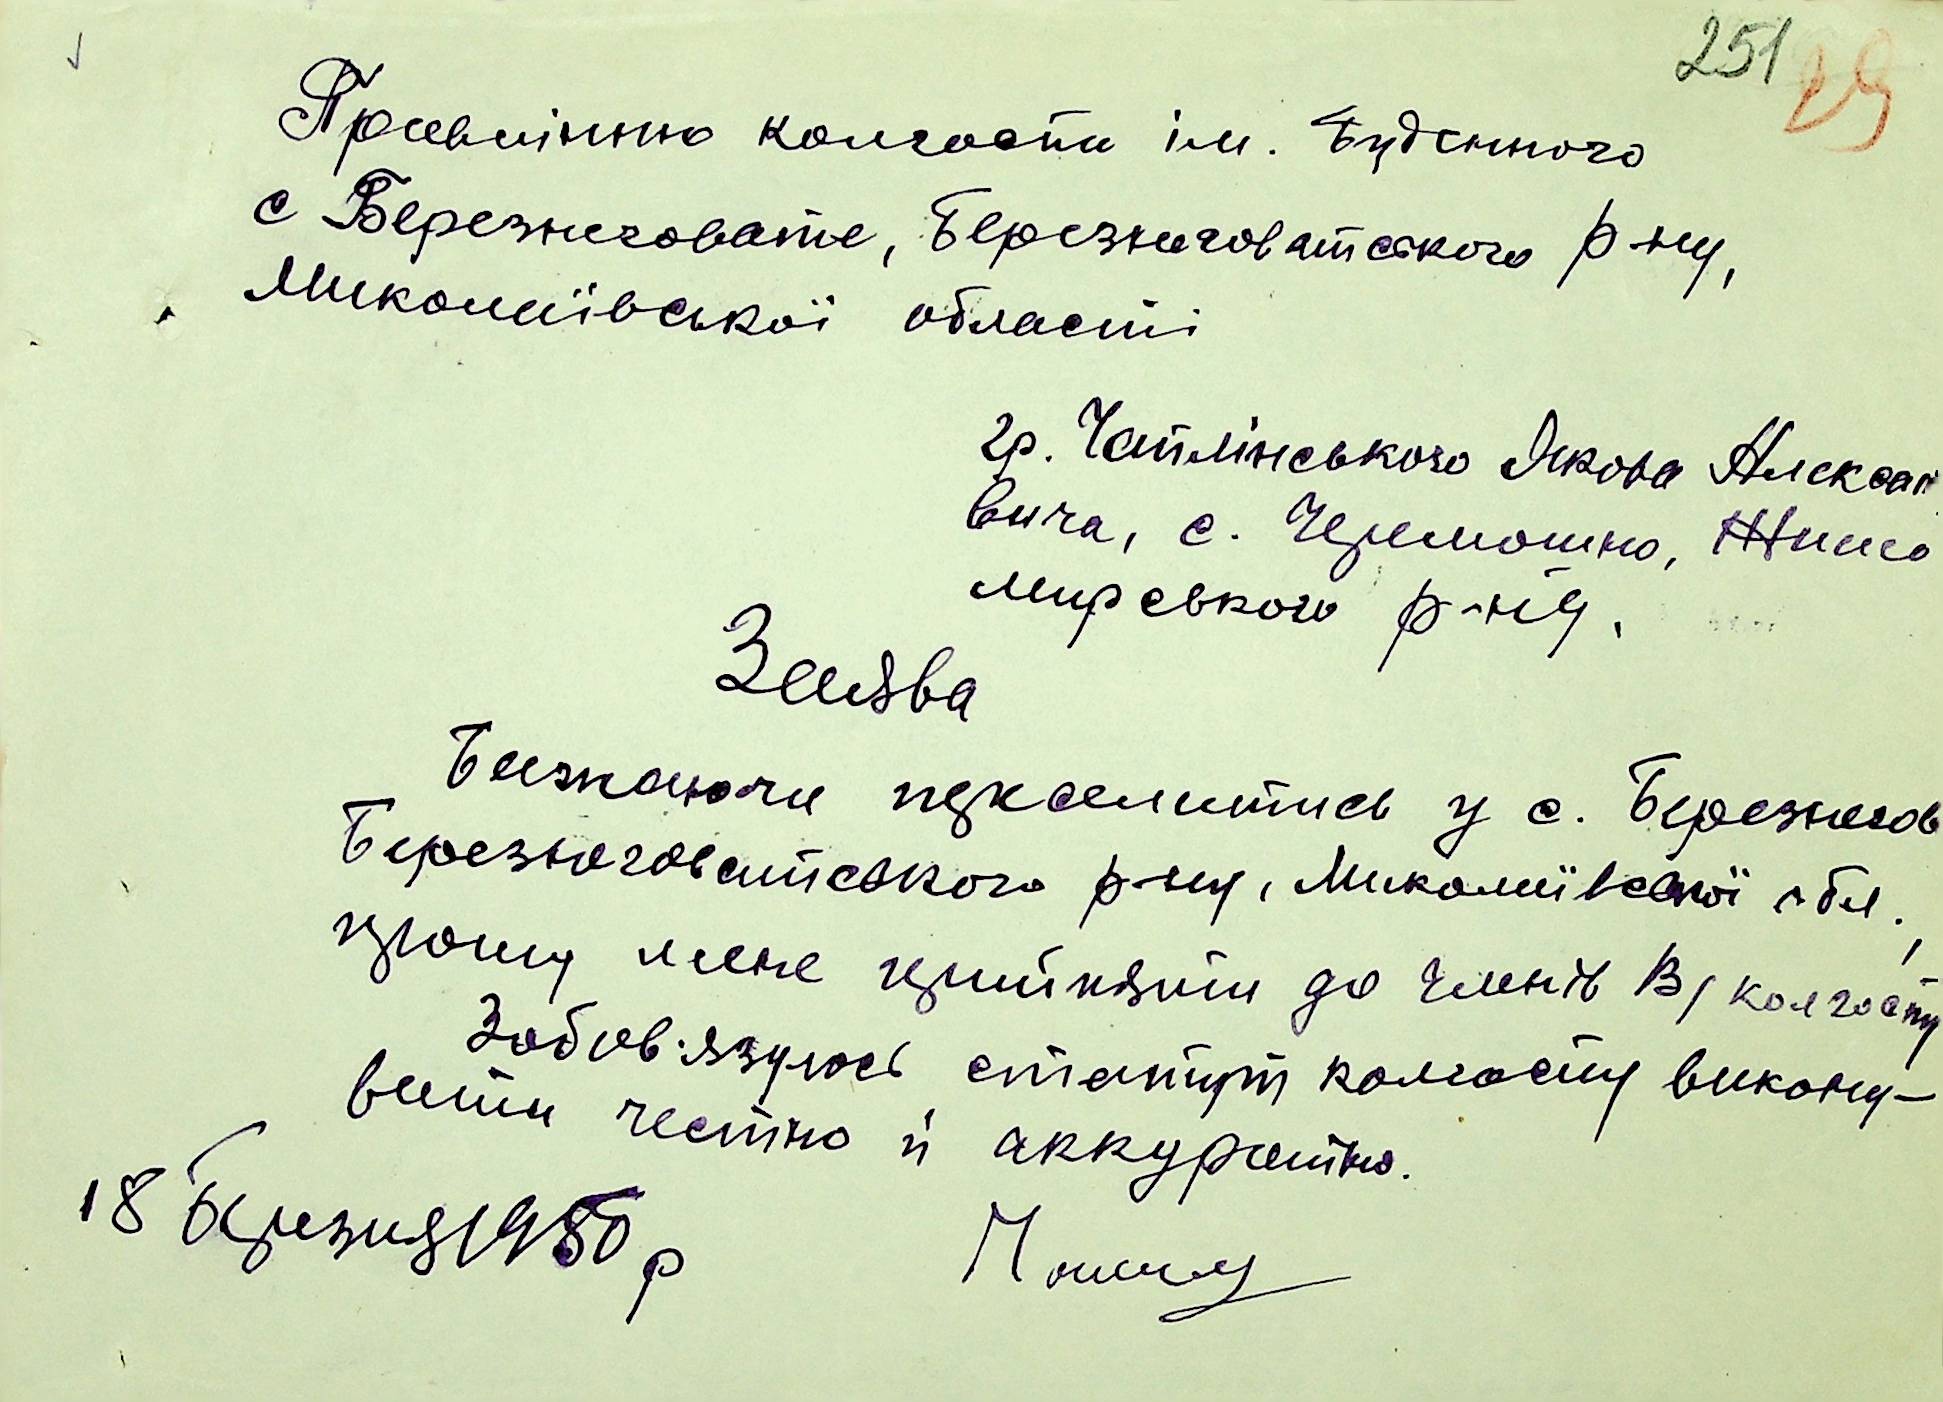 251 29
Правлінню колгоспу ім. Будьонного
с Березнеговате, Березнеговатського р-ну,
Миколаївської області
гр. Чаплінського Якова Алексан
вича, с. Черемошно, Жито
мирського р-ну.
Заява
Бажаючи переселитись у с. Березнегов
Березнеговатського р-ну, Миколаївської обл.,
прошу мене прийняти до членів В/колгоспу
Зобов'язуюсь статут колгоспу викону-
вати честно й аккуратно.
18 Березня 1950 р